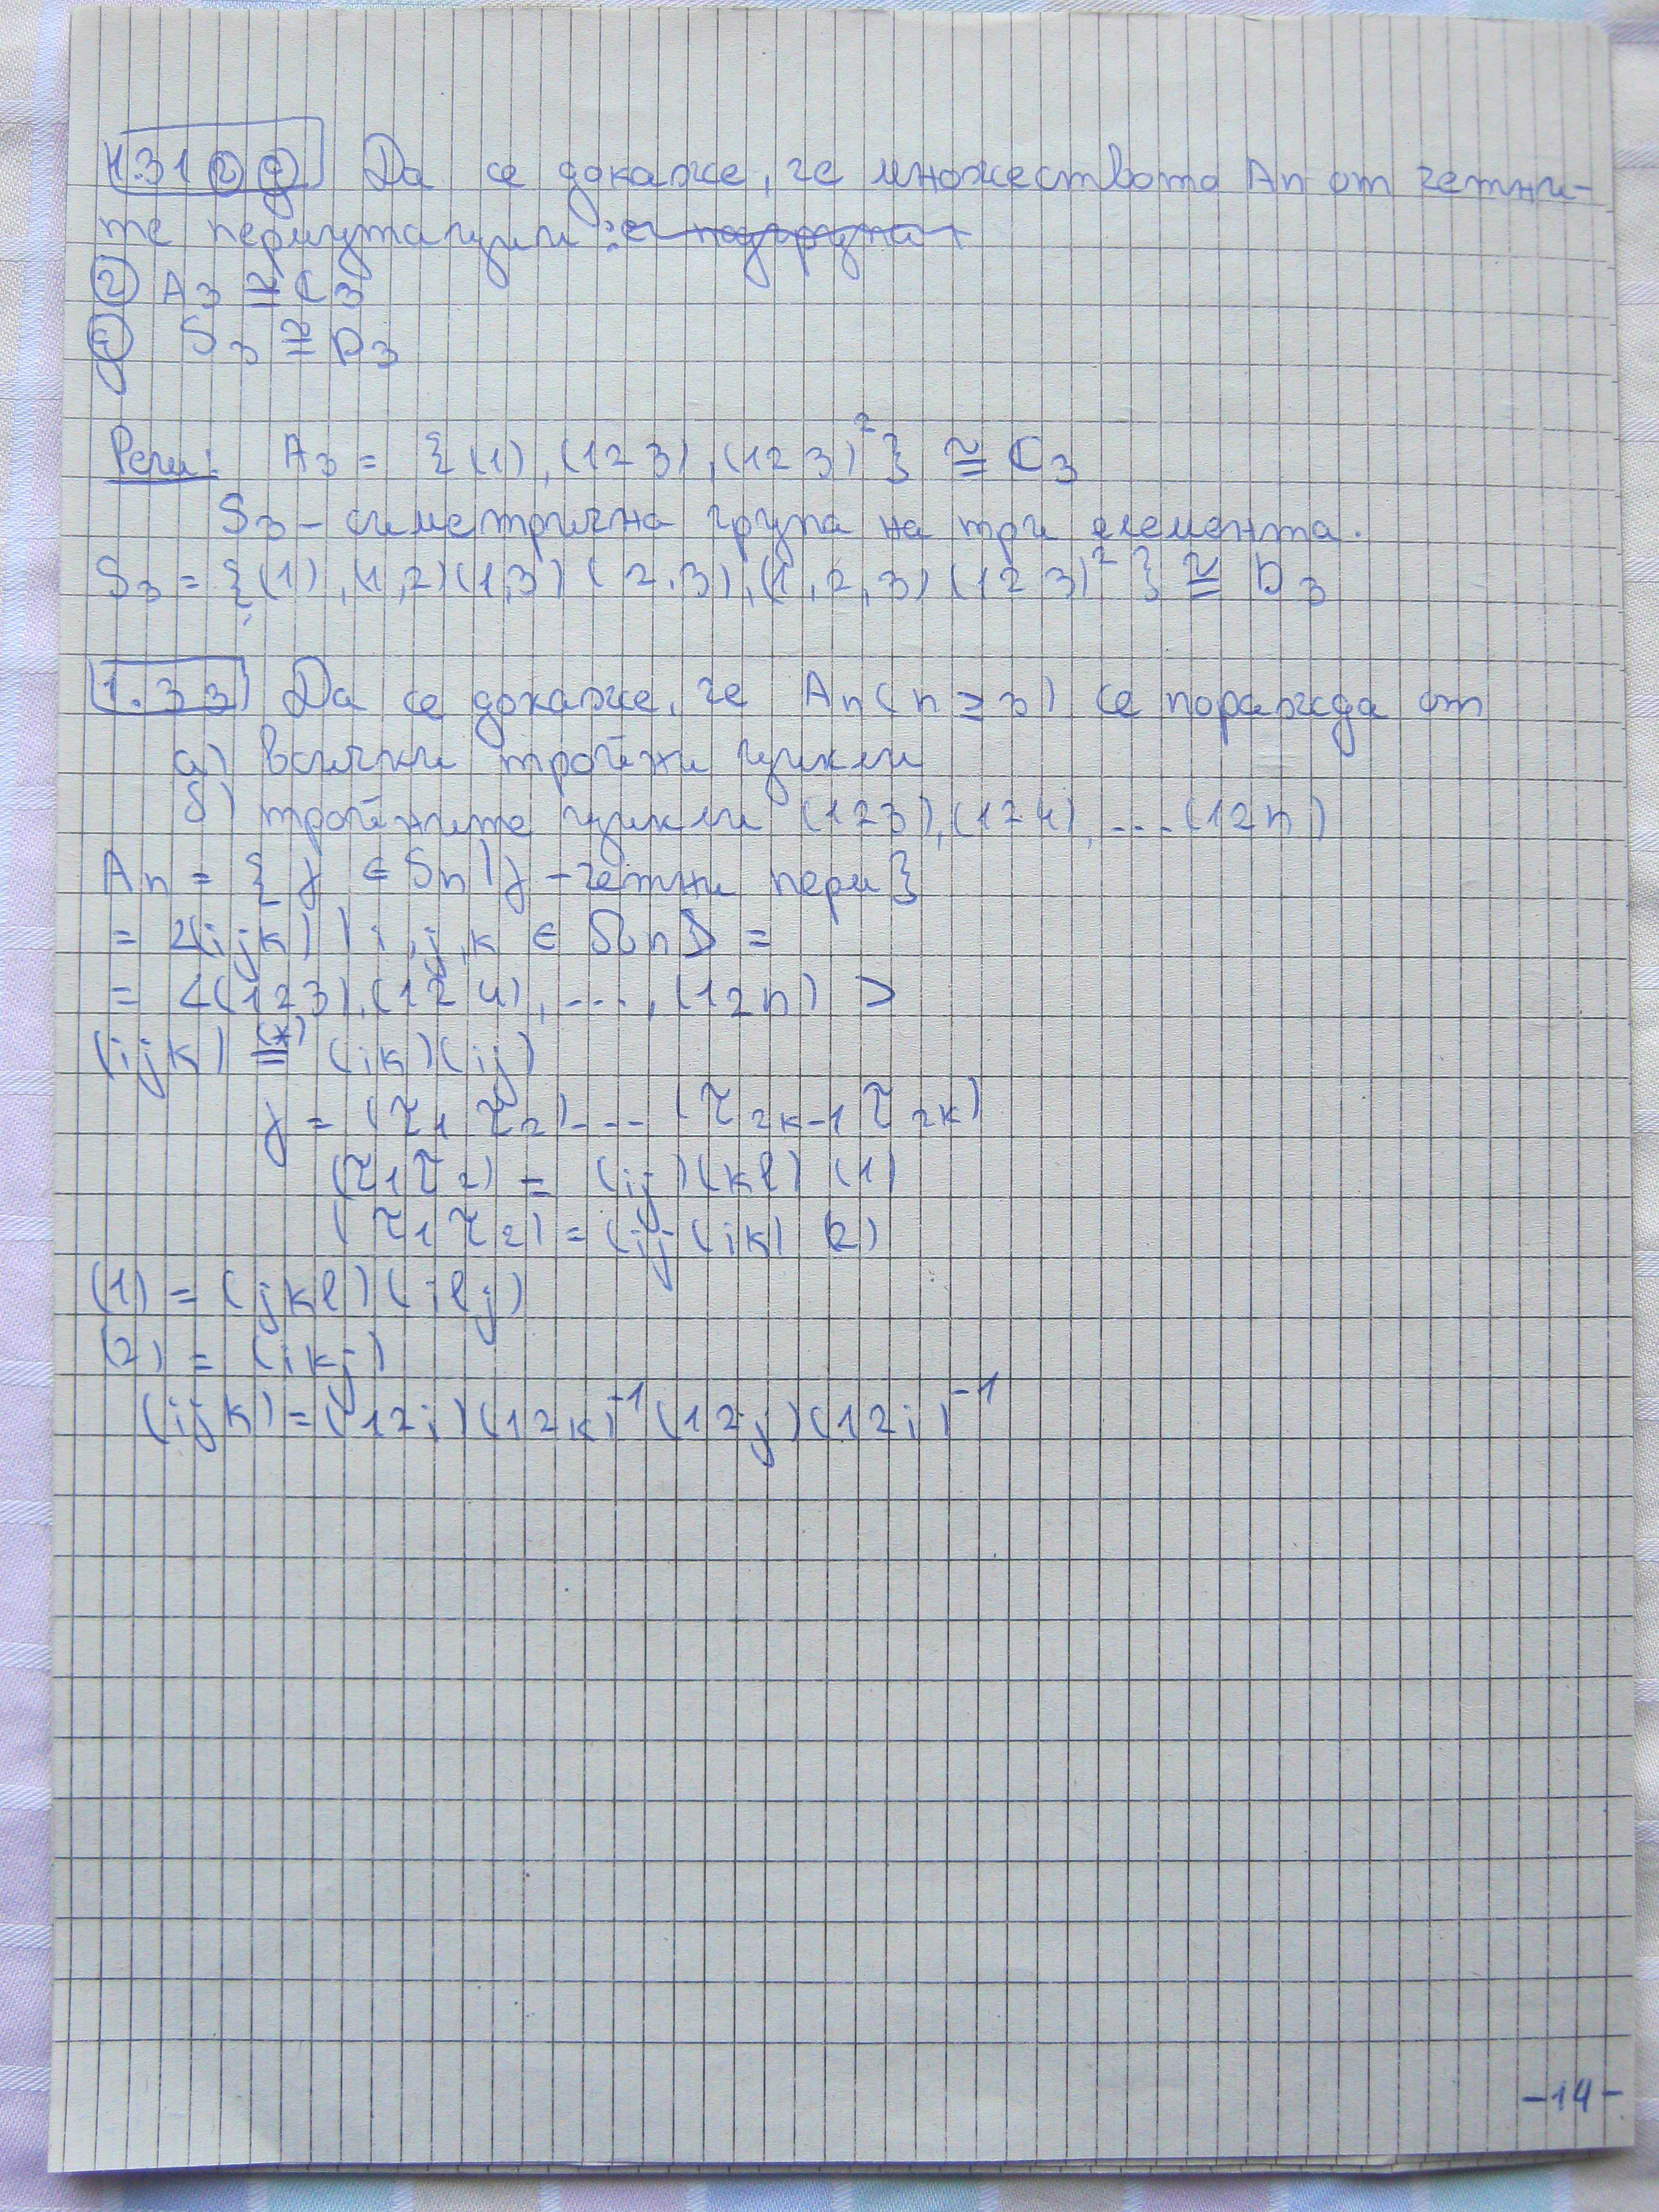 1.31 г д Да се докаже, че множеството An от четни-
те пермутации: е подгрупа
г A3 ≅ C3
д S3 ≅ D3
Реш: A3 = {(1), (123), (123)²} ≅ C3
S3 – симетрична група на три елемента.
S3 = {(1), (1,2)(1,3) (2,3), (1,2,3) (123)²} ≅ D3
1.33 Да се докаже, че An (n ≥ 3) се поражда от
а) всички тройни цикли
б) тройните цикли (123), (124), ... (12n)
An = {γ ∈ Sn | γ – четни перм}
= <(ijk) | i,j,k ∈ Ωn> =
= <(123), (124), ..., (12n)>
(ijk) =(*) (ik)(ij)
γ = (τ1 τ2) ... (τ2k-1 τ2k)
(τ1 τ2) = (ij)(kl) (1)
(τ1 τ2) = (ij (ik) (2)
(1) = (jkl)(ilj)
(2) = (ikj)
(ijk) = (12i)(12k)⁻¹(12j)(12i)⁻¹
-14-